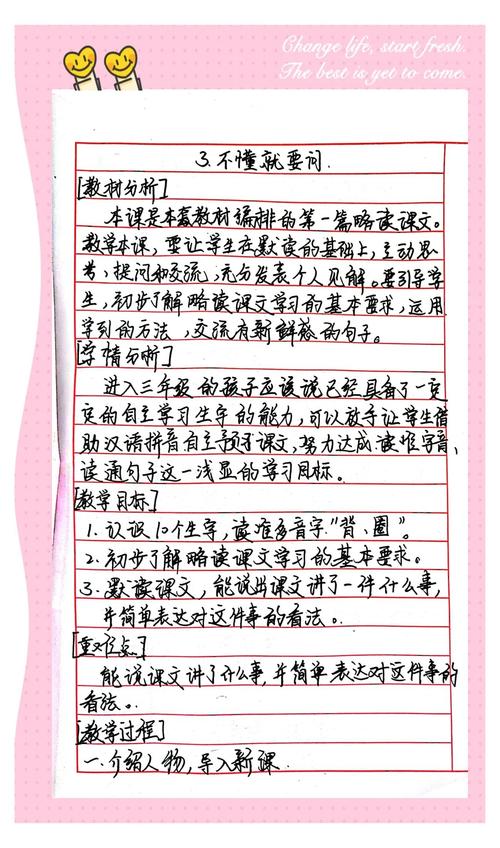 Change life, start fresh.
The best is yet to come.
3.不懂就要问.
[教材分析]
本课是本套教材编排的第一篇略读课文。
教学本课，要让学生在默读的基础上，主动思
考、提问和交流，充分发表个人见解。要引导学
生，初步了解略读课文学习的基本要求，运用
学到的方法，交流有新鲜感的句子。
[学情分析]
进入三年级的孩子应该说已经具备了一定
的自主学习生字的能力，可以放手让学生借
助汉语拼音自主预习课文，努力达成:读准字音、
读通句子这一浅显的学习目标。
[教学目标]
1.认识10个生字，读准多音字“背、圈”。
2.初步了解略读课文学习的基本要求。
3.默读课文，能说出课文讲了一件什么事，
并简单表达对这件事的看法。
[重难点]
能说课文讲了什么事，并简单表达对这件事的
看法。
[教学过程]
一.介绍人物，导入新课.